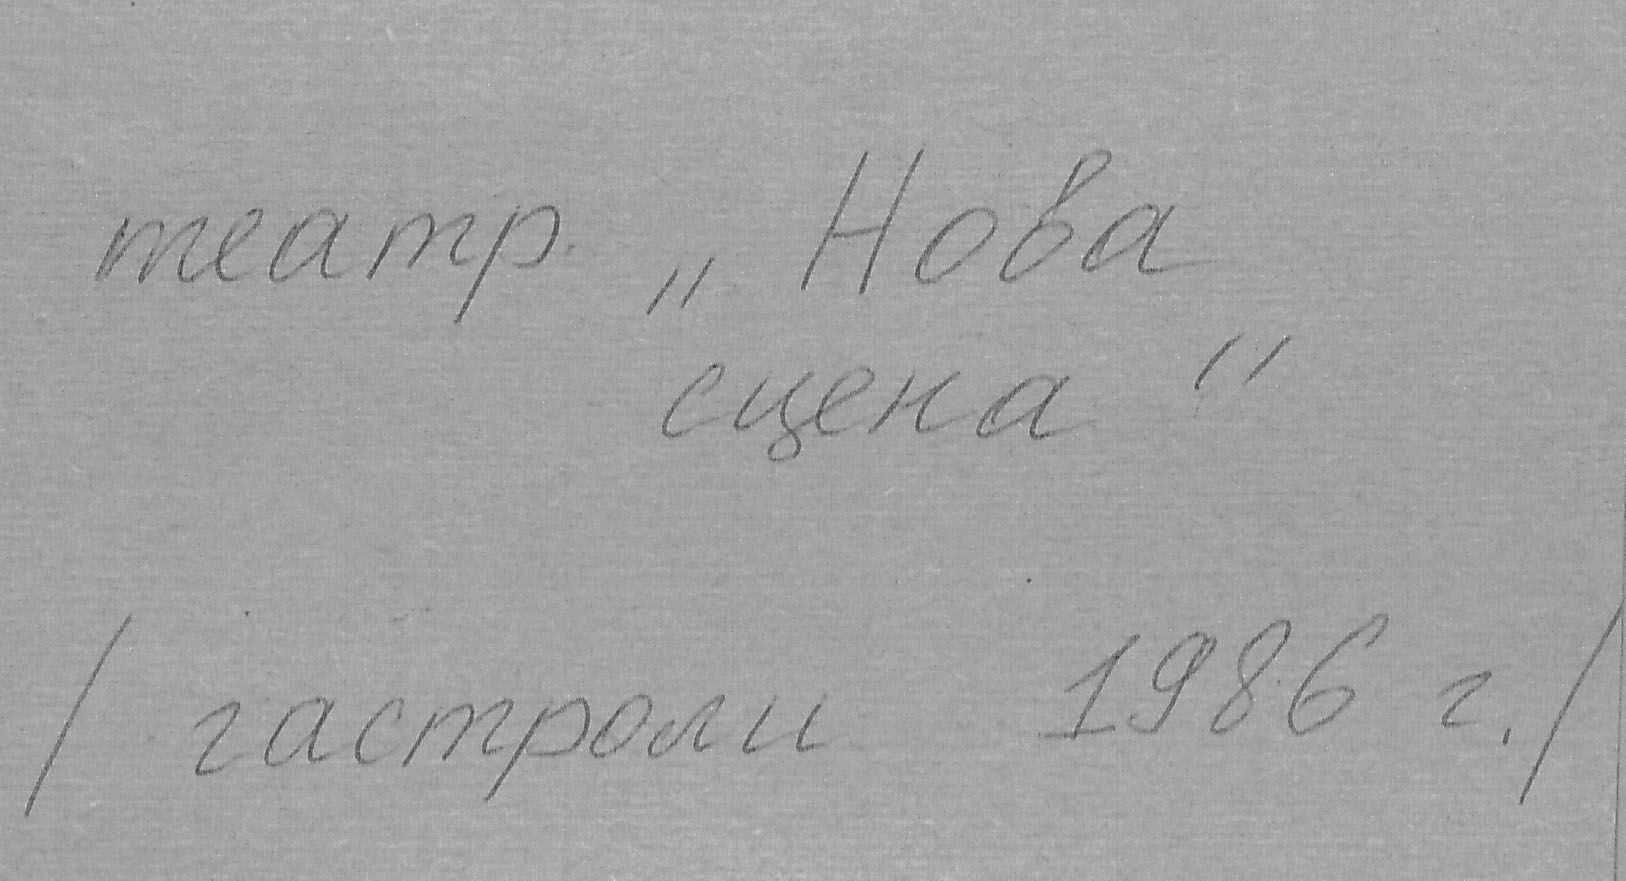 театр „ Нова
сцена "
/ гастроли 1986 г./